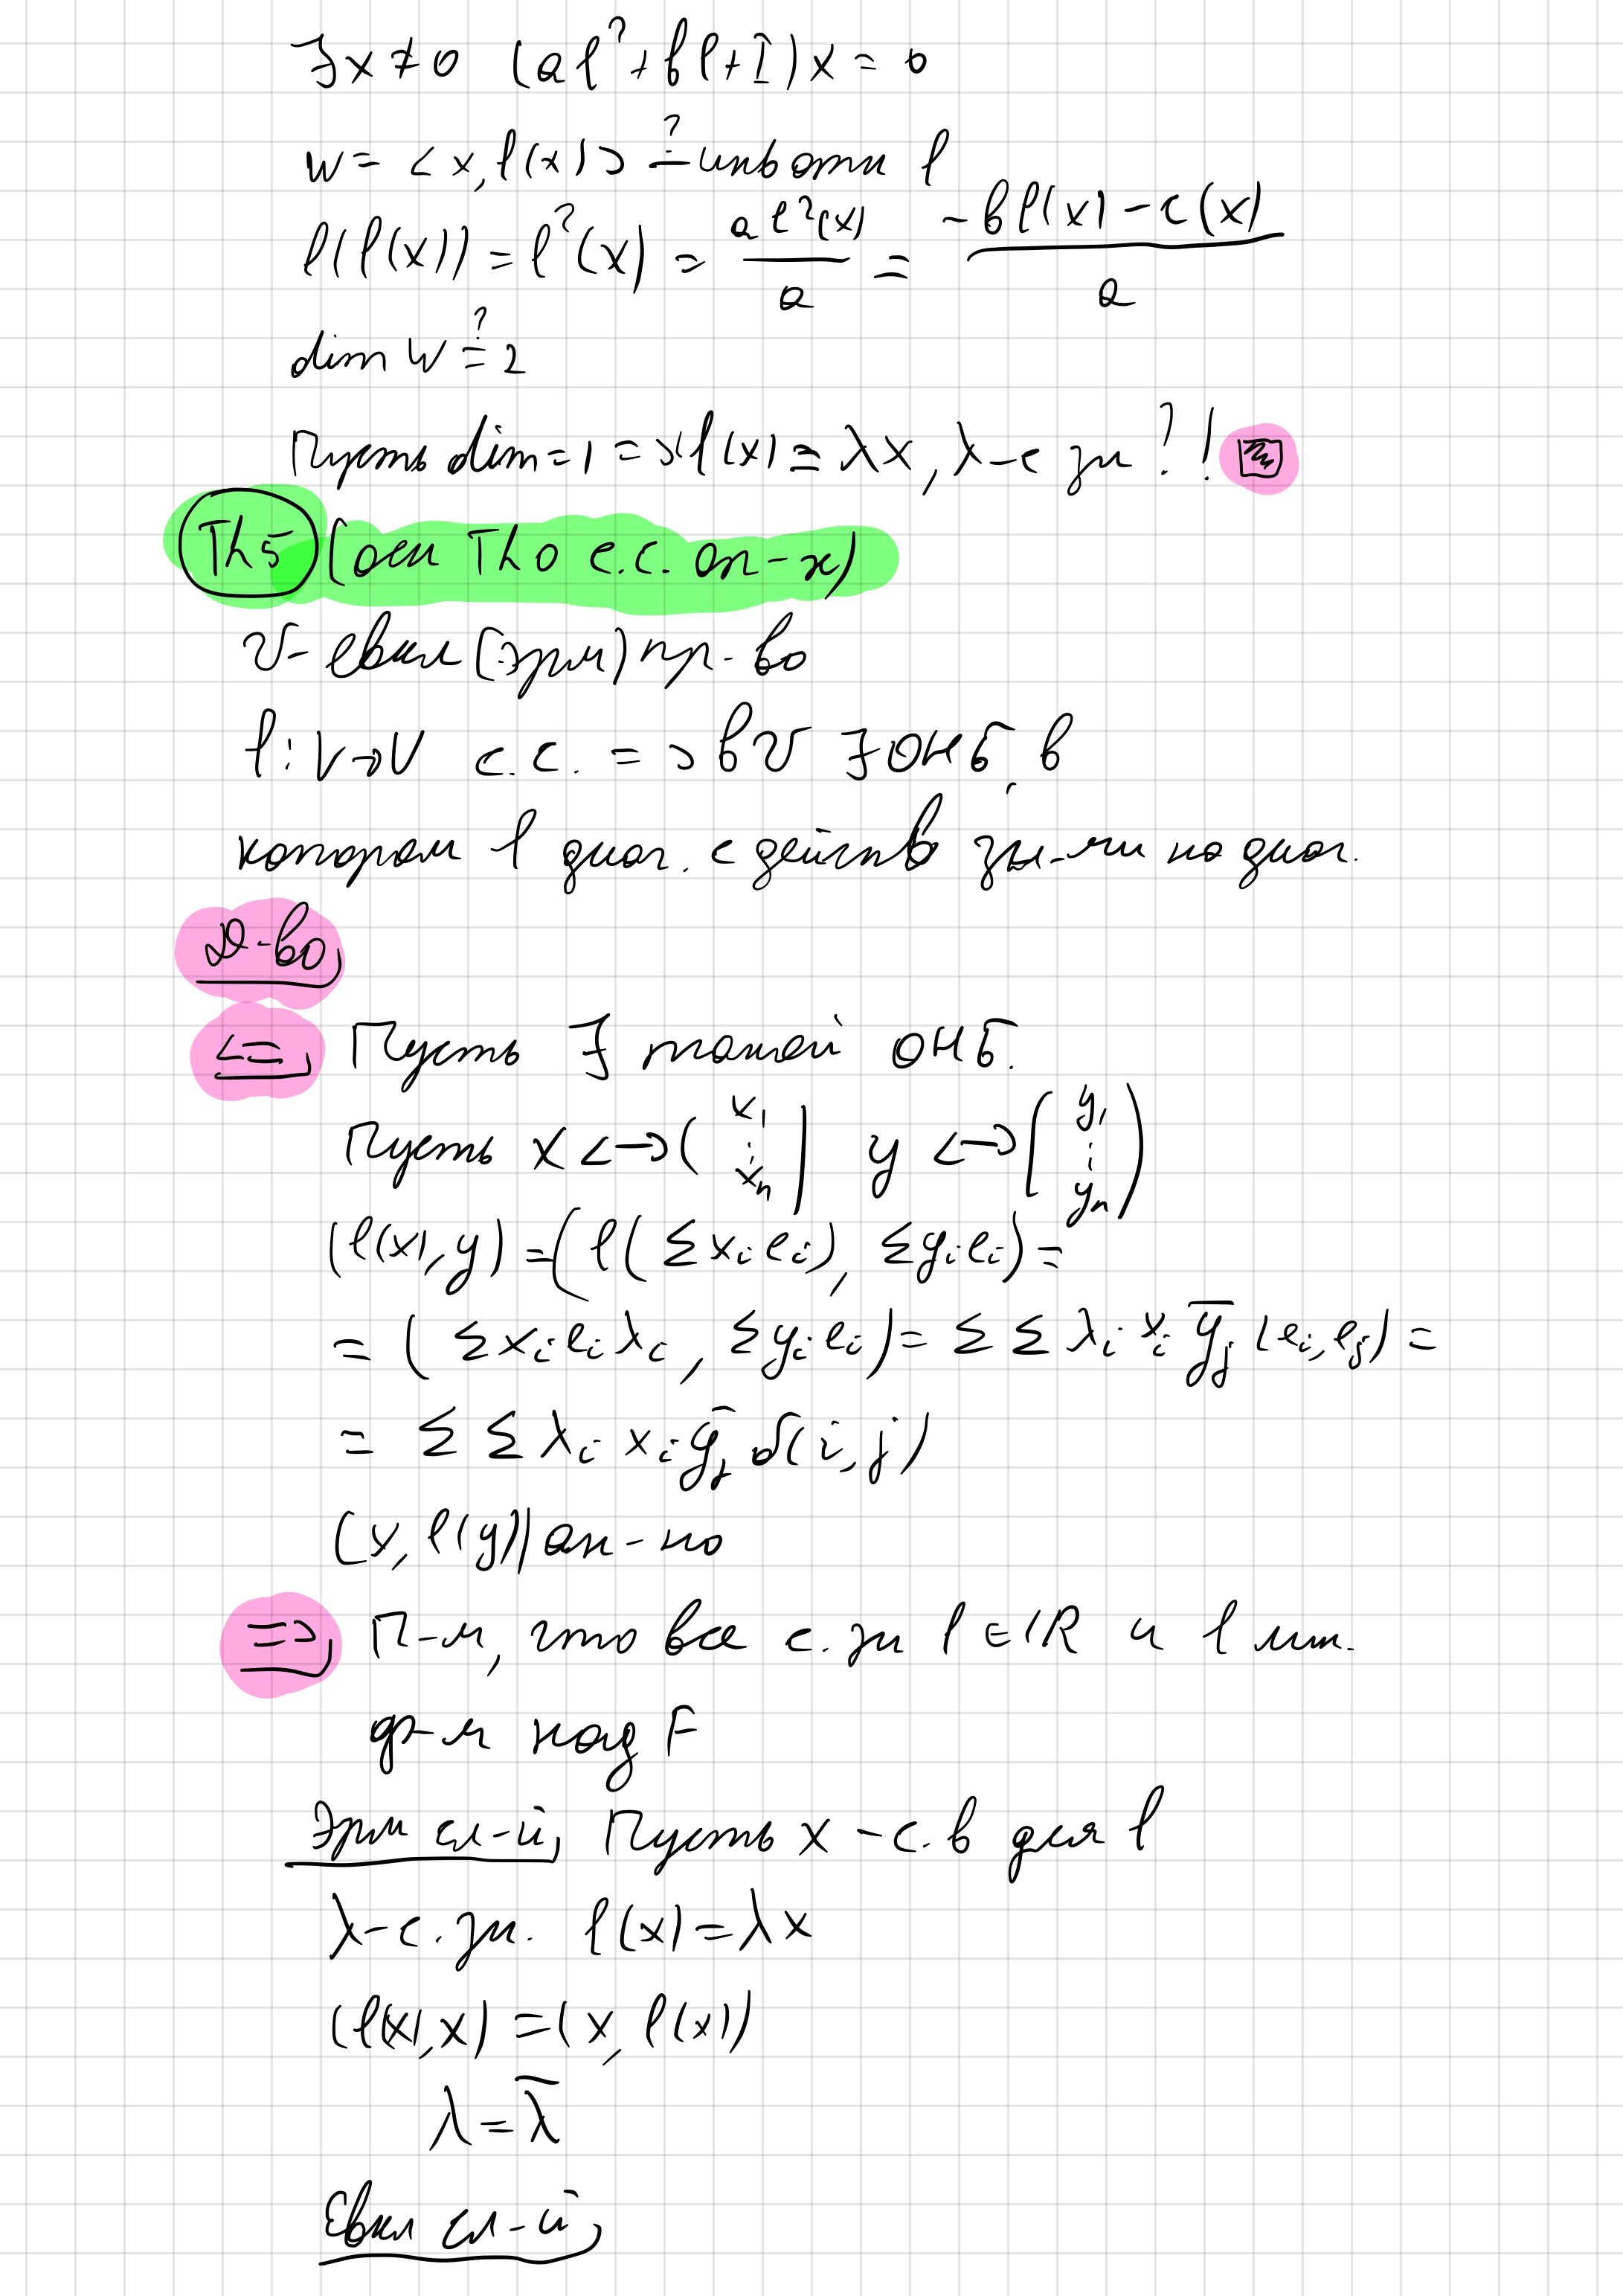 ∃x≠0 (aℓ²+bℓ+I)x=0
W=<x,ℓ(x)> ?- инв отн ℓ
ℓ(ℓ(x))=ℓ²(x)= aℓ²(x)/a = (-bℓ(x)-c(x))/a
dim W ?= 2
Пусть dim=1 => ℓ(x)=λx, λ-с зн ?!
Th5 (осн Th о с.с. оп-х)
V- евкл(эрм) пр-во
ℓ:V→V с.с. => в V ∃ ОНБ, в
котором ℓ диаг. с действ зн-ми на диаг.
Д-во
<= Пусть ∃ такой ОНБ.
Пусть x<->(x₁ ⋮ xₙ) y<->(y₁ ⋮ yₙ)
(ℓ(x),y)=(ℓ(Σxᵢeᵢ), Σyᵢeᵢ)=
=(Σxᵢeᵢλᵢ, Σyᵢeᵢ)=ΣΣλᵢxᵢȳⱼ(eᵢ,eⱼ)=
=ΣΣλᵢxᵢȳⱼδ(i,j)
(x,ℓ(y)) ан-но
=> П-м, что все с.зн ℓ∈ℝ и ℓ лин.
ф-м над F
Эрм сл-й, Пусть x -с.в для ℓ
λ-с.зн. ℓ(x)=λx
(ℓ(x),x)=(x,ℓ(x))
λ=λ̄
Евкл сл-й,